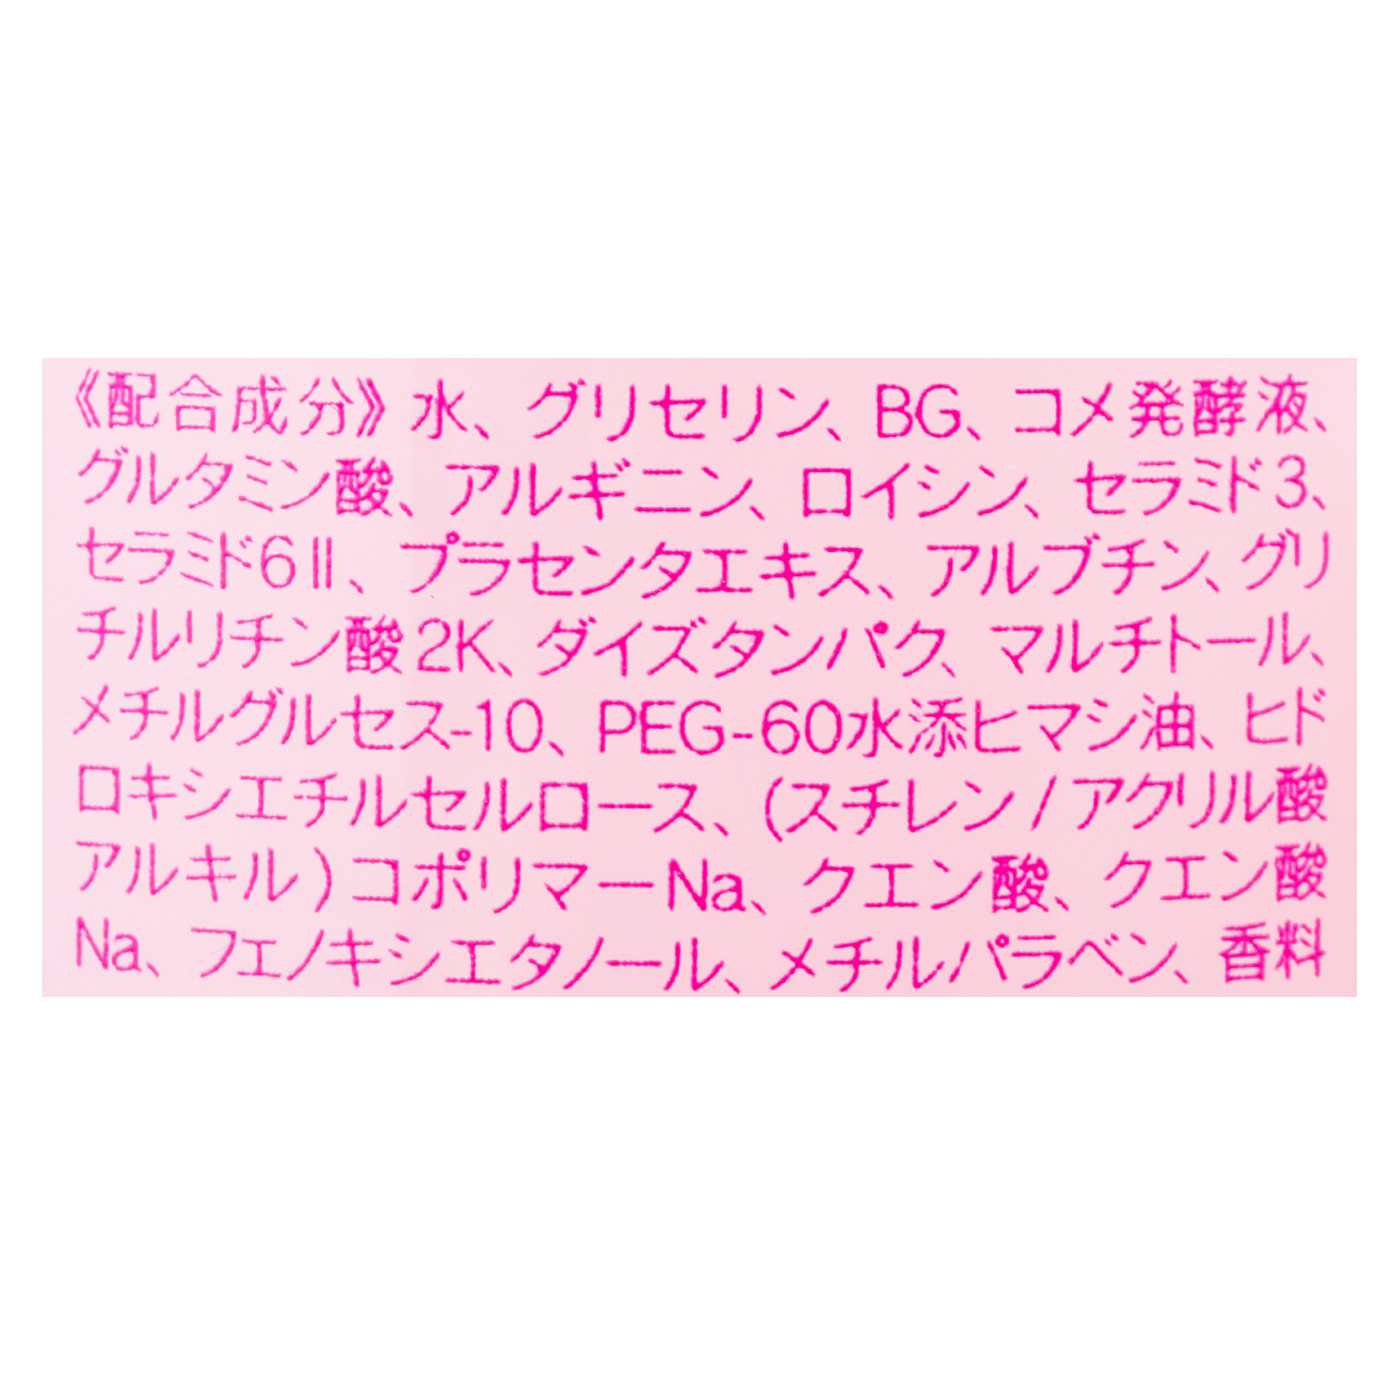 《配合成分》水、グリセリン、BG、コメ発酵液、
グルタミン酸、アルギニン、ロイシン、セラミド3、
セラミド6Ⅱ、プラセンタエキス、アルブチン、グリ
チルリチン酸2K、ダイズタンパク、マルチトール、
メチルグルセス-10、PEG-60水添ヒマシ油、ヒド
ロキシエチルセルロース、(スチレン/アクリル酸
アルキル)コポリマーNa、クエン酸、クエン酸
Na、フェノキシエタノール、メチルパラベン、香料